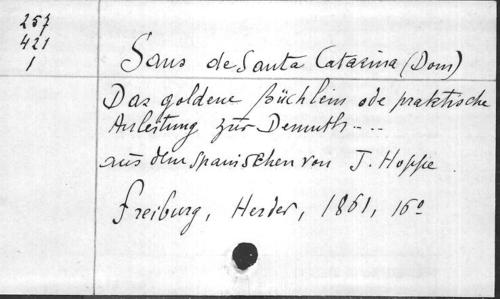 257
421
1
Sans de Santa Catarina (Dom)
Das goldene Büchlein ode praktische
Anleitung zur Demuth....
aus dem Spanischen von J. Hoppe.
Freiburg, Herder, 1861, 16°